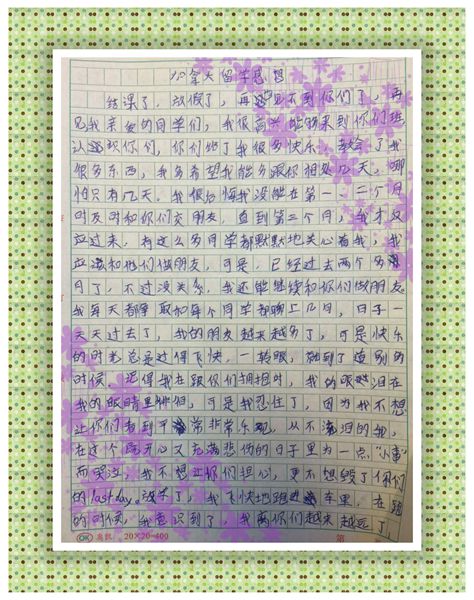 加拿大留学感想
结课了，放假了，再还见不到你们了，再
见我亲爱的同学们，我很高兴能够来到你们班
认识你们，你们给了我很多快乐，教会了我
很多东西，我多希望我能多跟你相处几天，哪
怕只有几天。我很后悔我没能在第一、二个月
时及时和你们交朋友，直到第三个月，我才反
应过来，有这么多同学都默默地关心着我，我
应该和他们做朋友，可是，已经过去两个多
月了，不过没关系，我还能继续和你们做朋友
我每天都争取和每个同学都聊上几句，日子一
天天过去了，我的朋友越来越多了，可是快乐
的时光总是过得飞快，一转眼，就到了道别的
时候，记得我在跟你们拥抱时，我的眼泪在
我的眼睛里徘徊，可是我忍住了，因为我不想
让你们看到平常非常乐观，从不流泪的我，
在这个既开心又充满悲伤的日子里为一点“小事”
而哭泣，我不想让你们担心，更不想毁了你们
的last day。放学了，我飞快地跑进车里，在跑
的时候，我意识到了，我离你们越来越远了，
OK 20×20=400